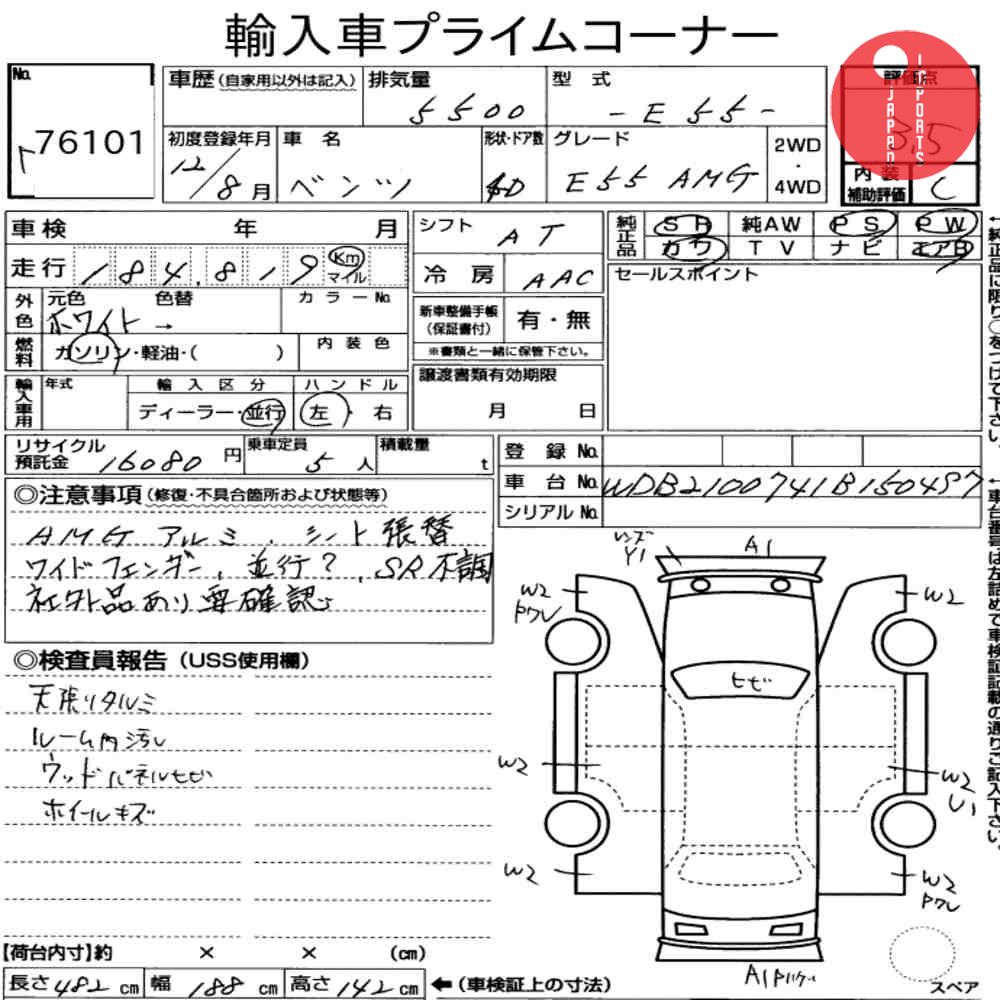 輸入車プライムコーナー
No.
76101
車歴(自家用以外は記入)
排気量
5500
型式
-E55-
JAPAN
IMPORTS
評価点
3.5
初度登録年月
12/8月
車名
ベンツ
形状・ドア数
4D
グレード
E55 AMG
2WD
・
4WD
内装
補助評価
C
車検 年 月
走行 184,819 Km マイル
外色
元色
ホワイト→
色替
カラーNo.
燃料
ガソリン・軽油・( )
内装色
輸入車用
年式
輸入区分
ディーラー・並行
ハンドル
左・右
シフト
AT
冷房
AAC
新車整備手帳
(保証書付)
有・無
※書類と一緒に保管下さい。
譲渡書類有効期限
月 日
純正品
SR 純AW PS PW
カワ TV ナビ エアB
セールスポイント
←純正品に限り○をつけて下さい。
リサイクル
預託金
16080円
乗車定員
5人
積載量
t
登録No.
車台No. WDB2100741B150497
シリアルNo.
←車台番号は左詰めで車検証記載の通りご記入下さい。
◎注意事項(修復・不具合箇所および状態等)
AMGアルミ、シート張替
ワイドフェンダー、並行?、SR不調
社外品あり要確認
◎検査員報告(USS使用欄)
天張リタルミ
ルーム内汚レ
ウッドパネルヒビ
ホイールキズ
レンズ
Y1
A1
W2
Pワレ
W2
ヒビ
W2
W2
U1
W2
W2
Pワレ
A1
スペア
【荷台内寸】約 × × (cm)
長さ482cm 幅188cm 高さ142cm ←(車検証上の寸法)